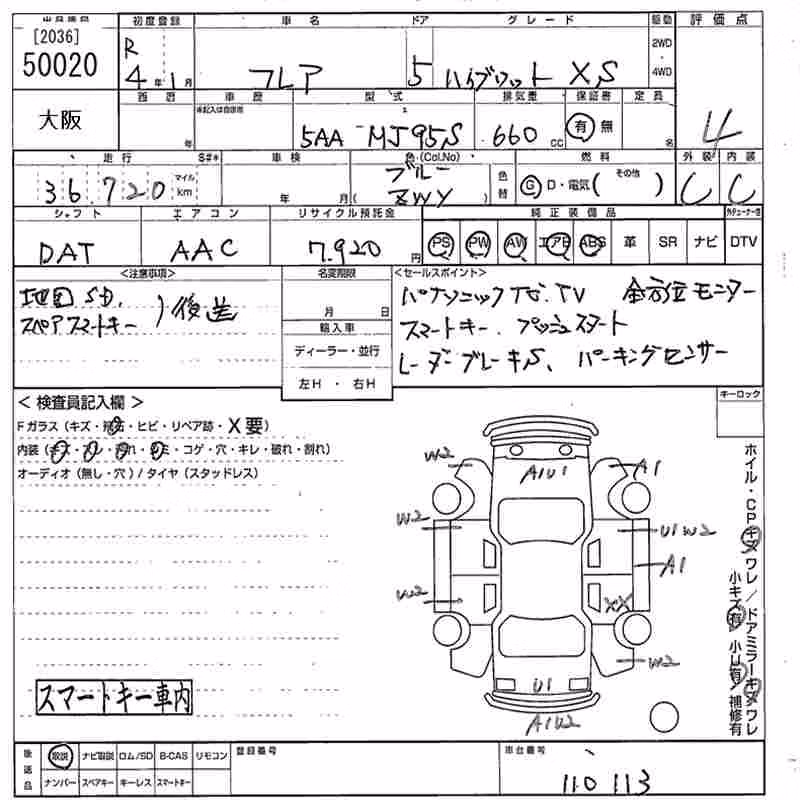 出品番号 初度登録 車名 ドア グレード 駆動 評価点
[2036] 50020 R 4年 1月 フレア 5 ハイブリット XS 2WD ・ 4WD
大阪 西暦 年 車歴 未記入は自家用 型式 5AA - MJ95S 排気量 660 cc 保証書 有 無 定員 名 4
走行 S#* 車検 色(Col.No) 燃料 外装 内装
36,720 マイル km 年 月 ブルー ( ZWY ) 色替 G D・電気( その他 ) C C
シフト エアコン リサイクル預託金 純正装備品 外チューナー信
DAT AAC 7,920 円 PS PW AW エアB ABS 革 SR ナビ DTV
<注意事項> 名変期限 <セールスポイント>
地図SD. )後送 月 日 パナソニックTV 全方位モニター
スペアスマートキー 輸入車 スマートキー. プッシュスタート
ディーラー・並行 レーダーブレーキS、パーキングセンサー
左H ・ 右H
<検査員記入欄> キーロック
Fガラス(キズ・飛石・ヒビ・リペア跡・X要)
内装(キズ・コゲ・穴・キレ・破れ・割れ)
オーディオ(無し・穴)/タイヤ(スタッドレス)
W2 A1U1 A1
W2 U1 W2
A1
W2 XX
W2
U1
A1U2
ホイル・CPキズワレ/ドアミラーキズワレ
小キズ有 小U有 補修有
スマートキー車内
後送品 取説 ナビ取説 ロム/SD B-CAS リモコン 登録番号 車台番号
ナンバー スペアキー キーレス スマートキー 110113